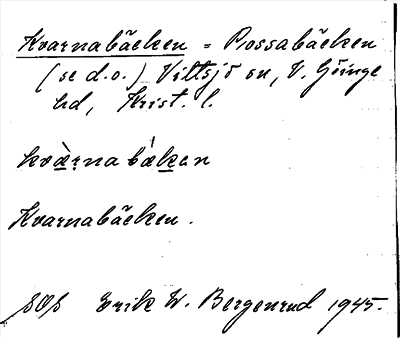 Kvarnabäcken = Possabäcken
(se d.o.) Vittsjö sn, V. Göinge
hd, Krist. l.
kvæ̀rnabækan
Kvarnabäcken.
Erik W. Bergenrud 1945.